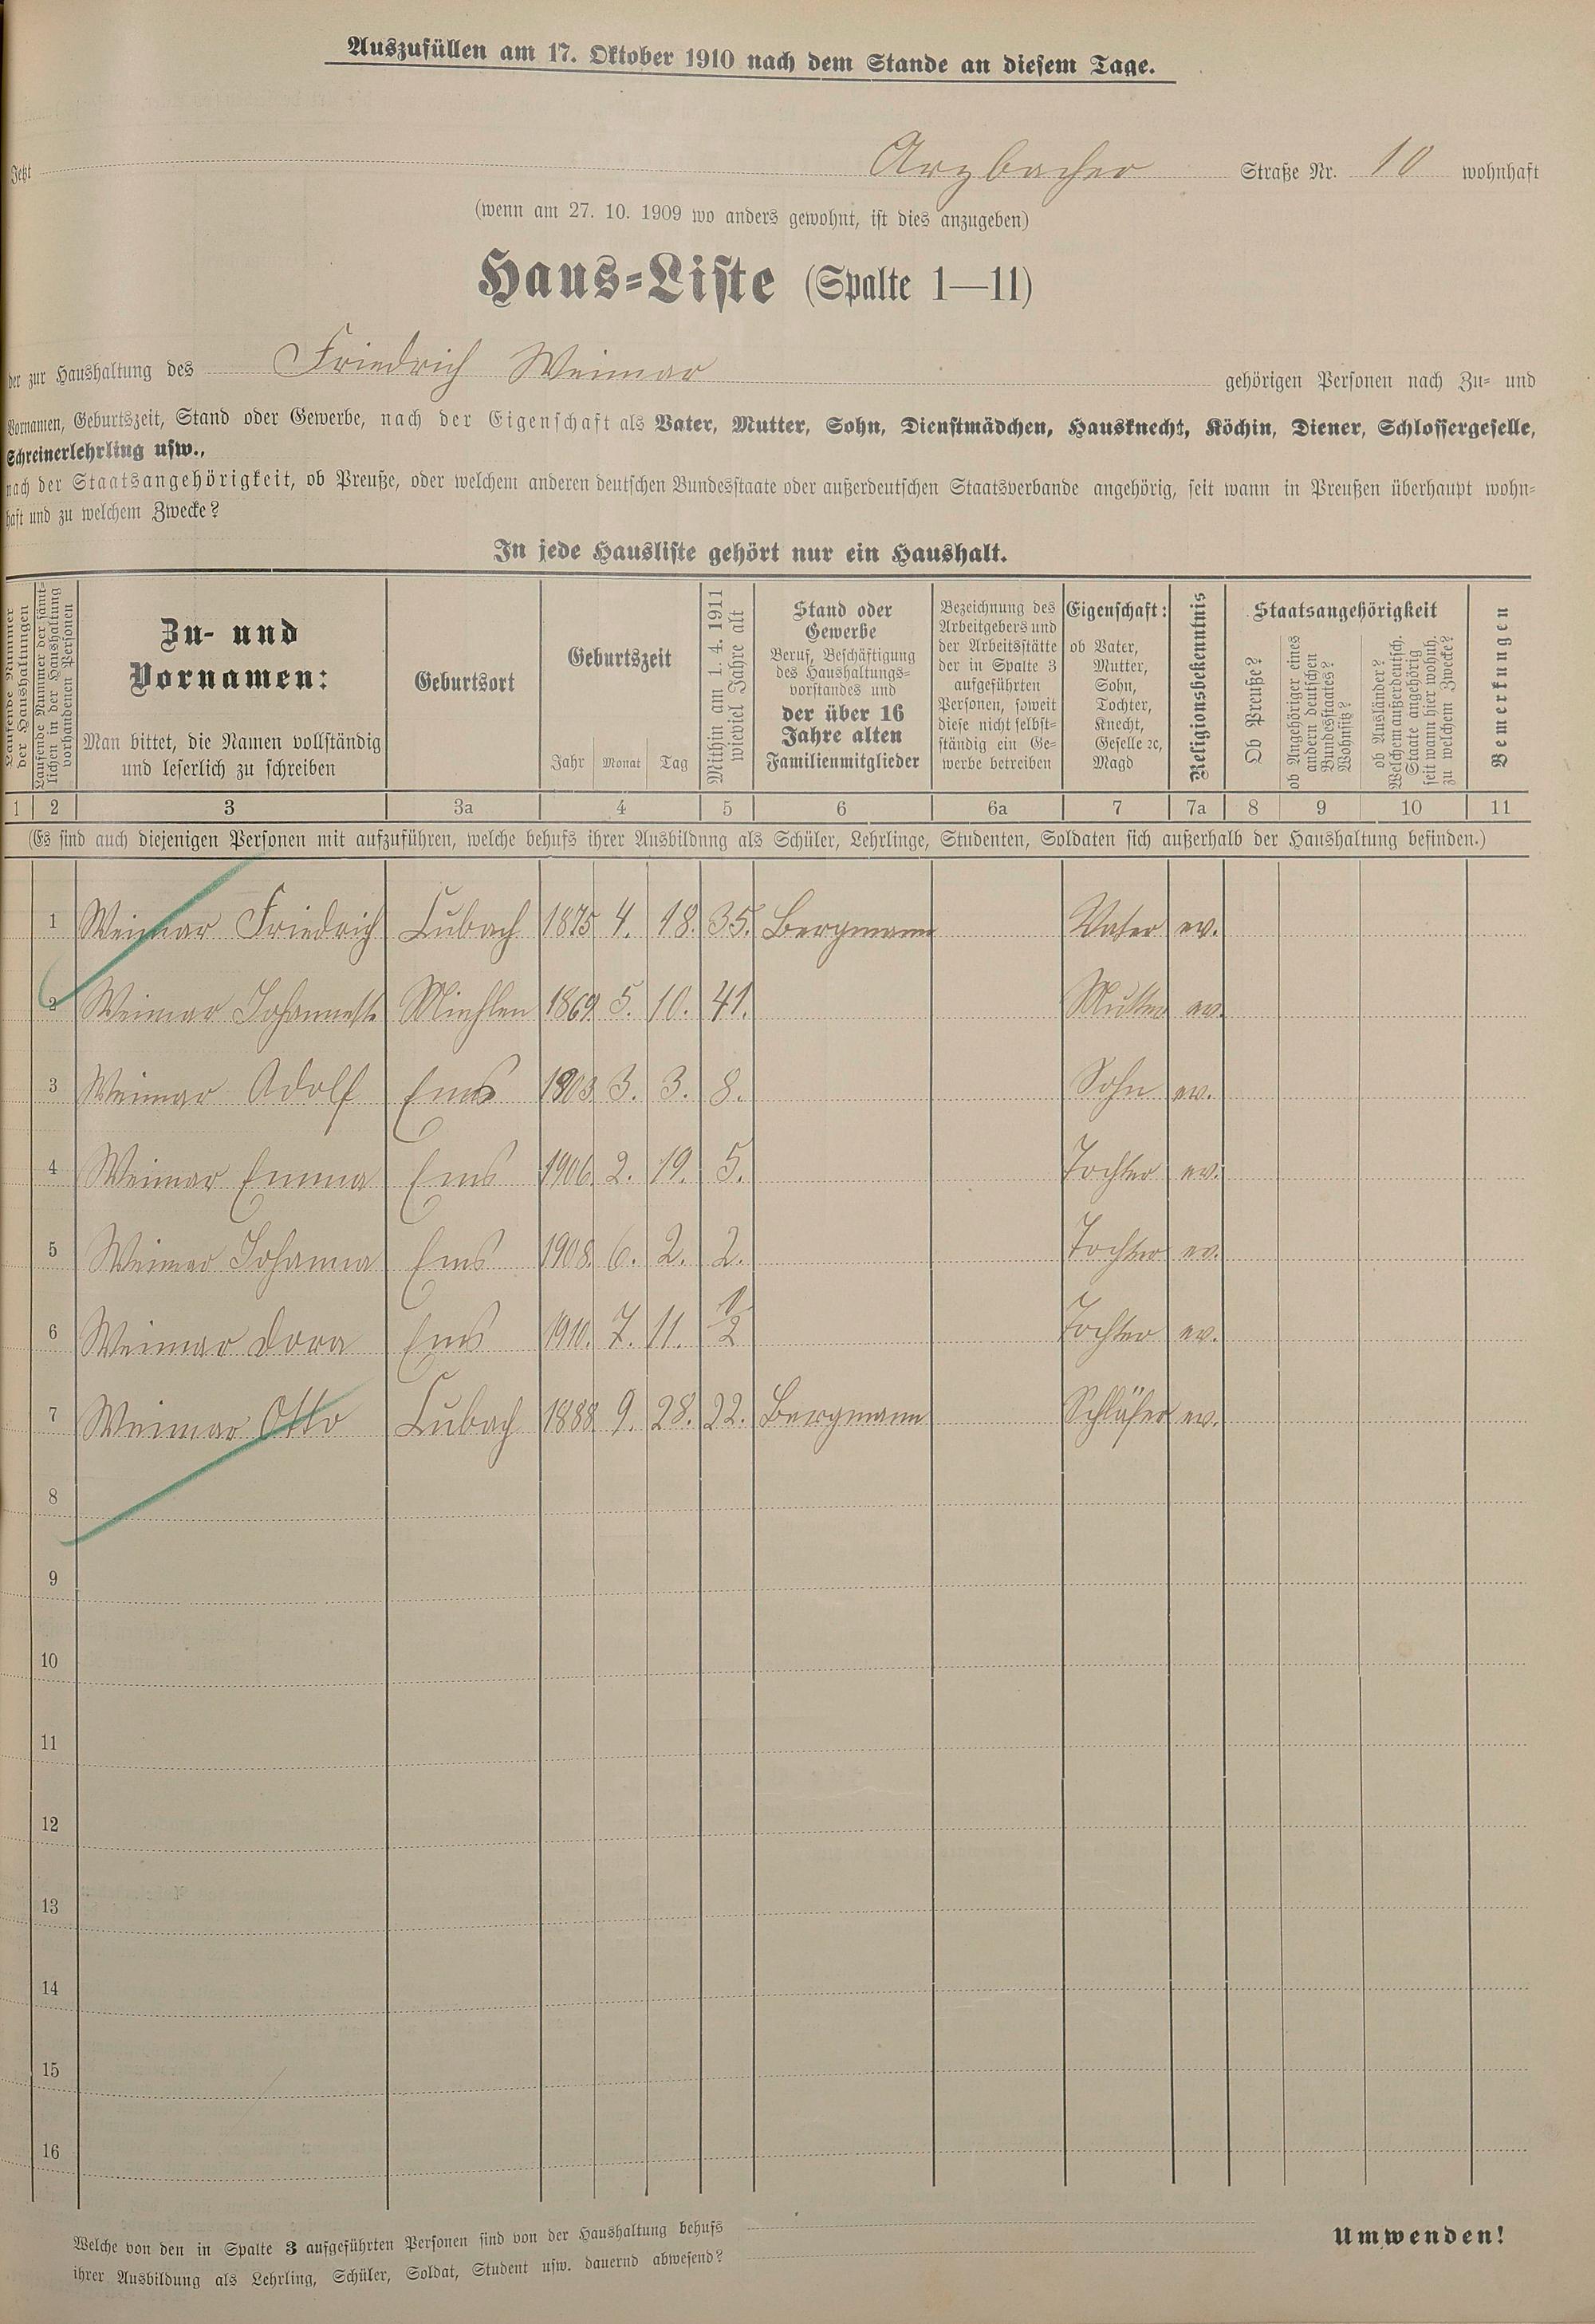 Auszufüllen am 17. Oktober 1910 nach dem Stande an diesem Tage.
Jetzt Arzbacher Straße Nr. 10 wohnhaft
(wenn am 27. 10. 1909 wo anders gewohnt, ist dies anzugeben)
Haus-Liste (Spalte 1—11)
der zur Haushaltung des Friedrich Weimar gehörigen Personen nach Zu- und
Vornamen, Geburtszeit, Stand oder Gewerbe, nach der Eigenschaft als Vater, Mutter, Sohn, Dienstmädchen, Hausknecht, Köchin, Diener, Schlossergeselle,
Schreinerlehrling usw.,
nach der Staatsangehörigkeit, ob Preuße, oder welchem anderen deutschen Bundesstaate oder außerdeutschen Staatsverbande angehörig, seit wann in Preußen überhaupt wohn-
haft und zu welchem Zwecke?
In jede Hausliste gehört nur ein Haushalt.
Laufende Nummer
der Haushaltungen
Laufende Nummer der sämt-
lichen in der Haushaltung
vorhandenen Personen
Zu- und
Vornamen:
Man bittet, die Namen vollständig
und leserlich zu schreiben
Geburtsort
Geburtszeit
Jahr Monat Tag
Mithin am 1. 4. 1911
wieviel Jahre alt
Stand oder
Gewerbe
Beruf, Beschäftigung
des Haushaltungs-
vorstandes und
der über 16
Jahre alten
Familienmitglieder
Bezeichnung des
Arbeitgebers und
der Arbeitsstätte
der in Spalte 3
aufgeführten
Personen, soweit
diese nicht selbst-
ständig ein Ge-
werbe betreiben
Eigenschaft:
ob Vater,
Mutter,
Sohn,
Tochter,
Knecht,
Geselle ꝛc,
Magd
Religionsbekenntnis
Staatsangehörigkeit
Ob Preuße?
ob Angehöriger eines
andern deutschen
Bundesstaates?
Wohnsitz?
ob Ausländer?
Welchem außerdeutsch.
Staate angehörig
seit wann hier wohnh.
zu welchem Zwecke?
Bemerkungen
1 2 3 3a 4 5 6 6a 7 7a 8 9 10 11
(Es sind auch diejenigen Personen mit aufzuführen, welche behufs ihrer Ausbildung als Schüler, Lehrlinge, Studenten, Soldaten sich außerhalb der Haushaltung befinden.)
1 Weimar Friedrich Lubach 1875 4. 18. 35. Bergmann Vater ev.
2 Weimar Johannette Miehlen 1869 5. 10. 41. Mutter ev.
3 Weimar Adolf Ems 1903 3. 3. 8. Sohn ev.
4 Weimar Emma Ems 1906. 2. 19. 5. Tochter ev.
5 Weimar Johanna Ems 1908. 6. 2. 2. Tochter ev.
6 Weimar Dora Ems 1910. 7. 11. 1/2 Tochter ev.
7 Weimar Otto Lubach 1888 9. 28. 22. Bergmann Schläfer ev.
8
9
10
11
12
13
14
15
16
Welche von den in Spalte 3 aufgeführten Personen sind von der Haushaltung behufs
ihrer Ausbildung als Lehrling, Schüler, Soldat, Student usw. dauernd abwesend?
Umwenden!